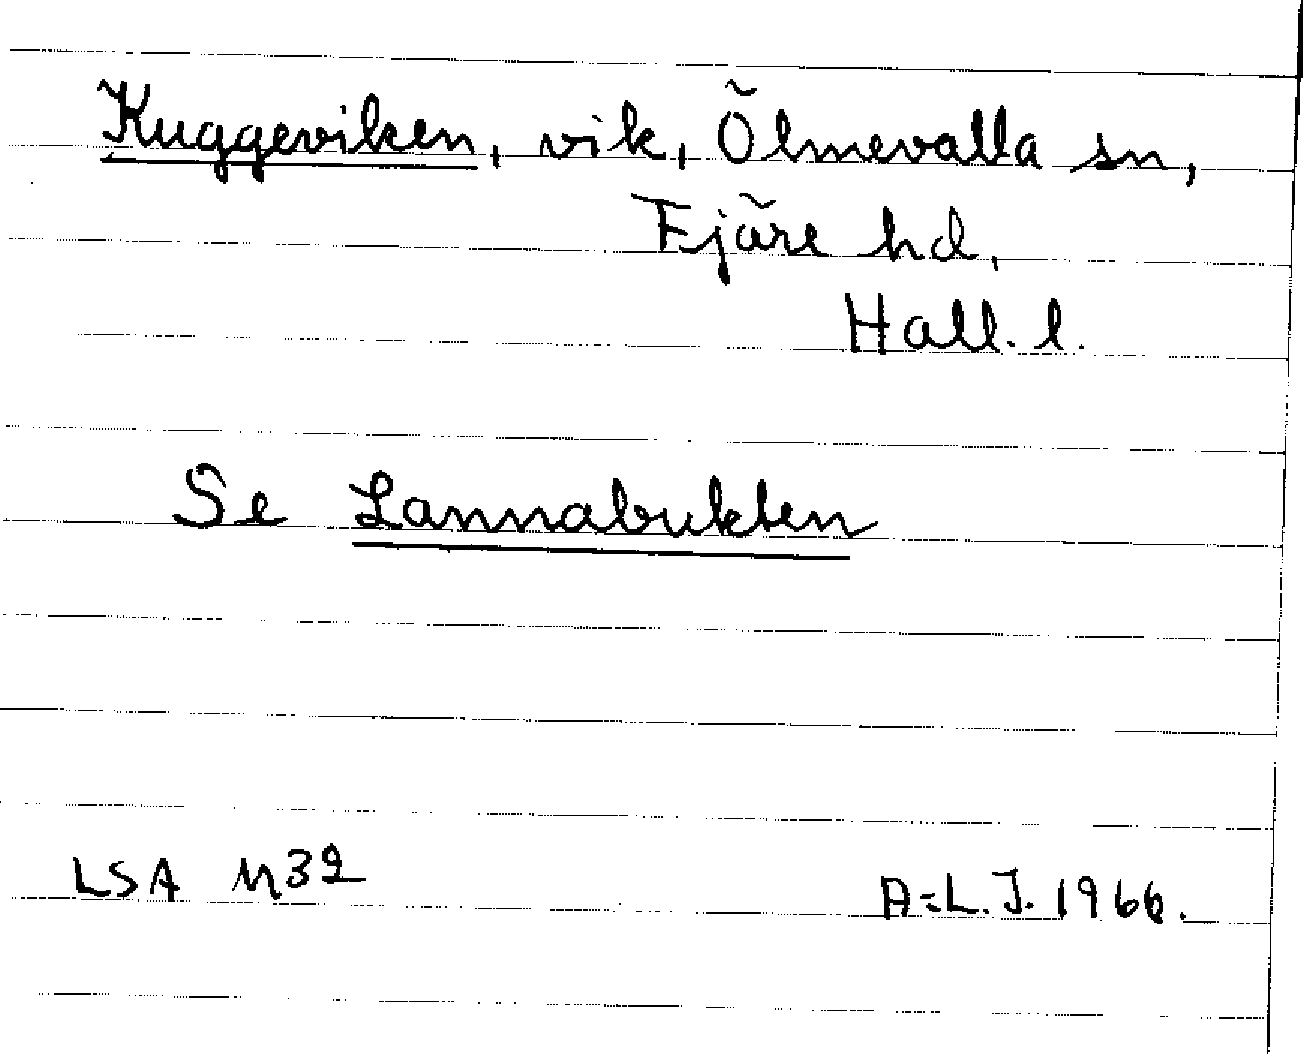 Kuggeviken, vik, Ölmevalla sn,
Fjäre hd,
Hall. l.
Se Lannabukten
LSA M32
A-L. J. 1966.